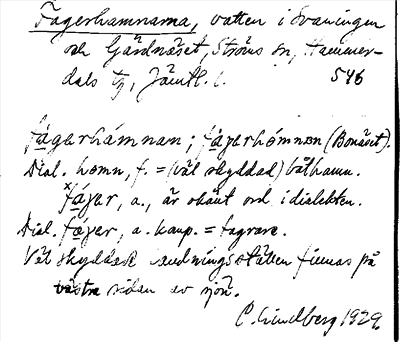 Fagerhamnarna, vatten i Svaningen
och Gärdnäset, Ströms sn, Hammer-
dals tg, Jämtl. l. 546
fágerhámnan; fáγerhómnən (Bonäset).
Dial. homn, f. = (väl skyddad) båthamn.
ˣfáγer, a., är okänt ord i dialekten.
Dial. fáγer, a. komp. = fagrare.
Väl skyddade landningsställen finnas på
västra sidan av sjön.
C. Lindberg 1929.